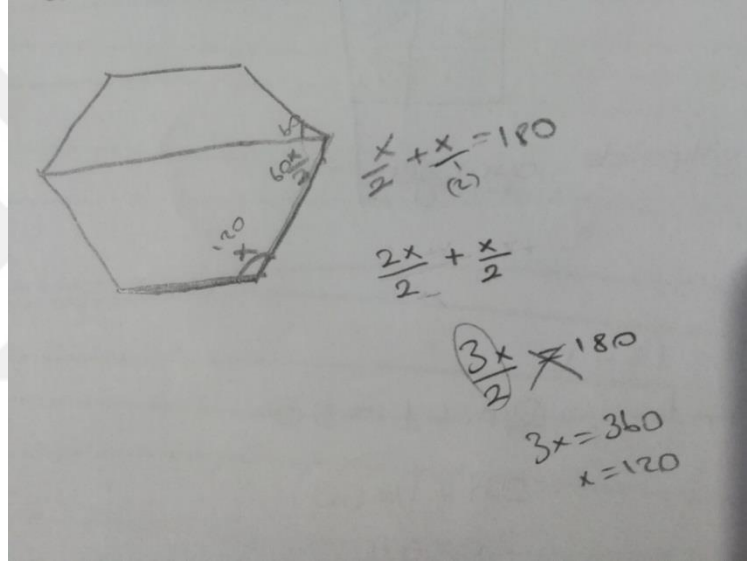 60 x/2
120
x
x/2 + x/1 = 180
(2)
2x/2 + x/2
3x/2 = 180
3x = 360
x = 120